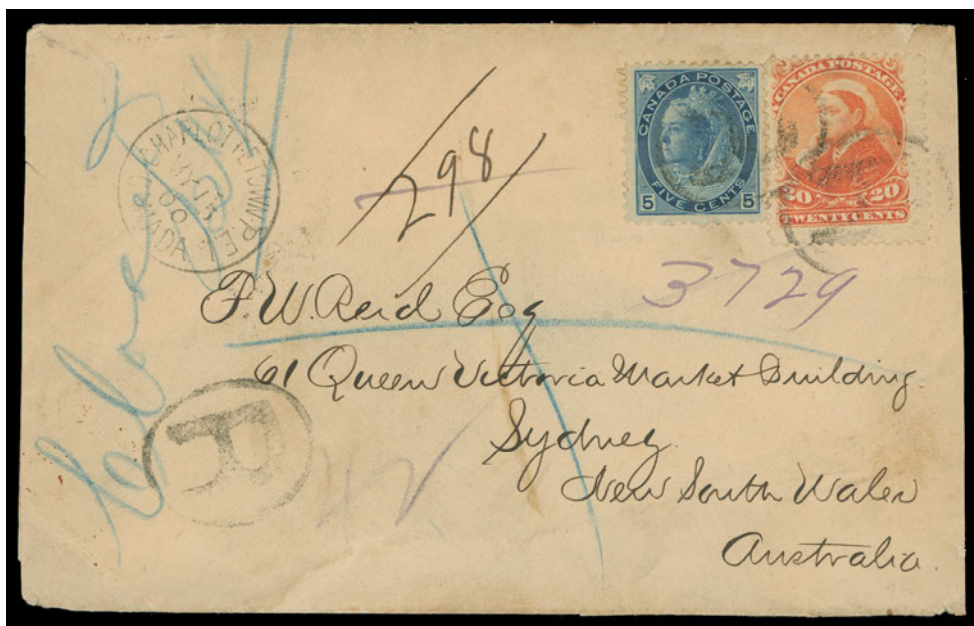 CHARLOTTETOWN P.E.I.
CANADA
298
CANADA POSTAGE
5 FIVE CENTS 5
CANADA POSTAGE
20 20
TWENTY CENTS
3729
F. W. Reid Esq
61 Queen Victoria Market Building
Sydney
New South Wales
Australia.
R